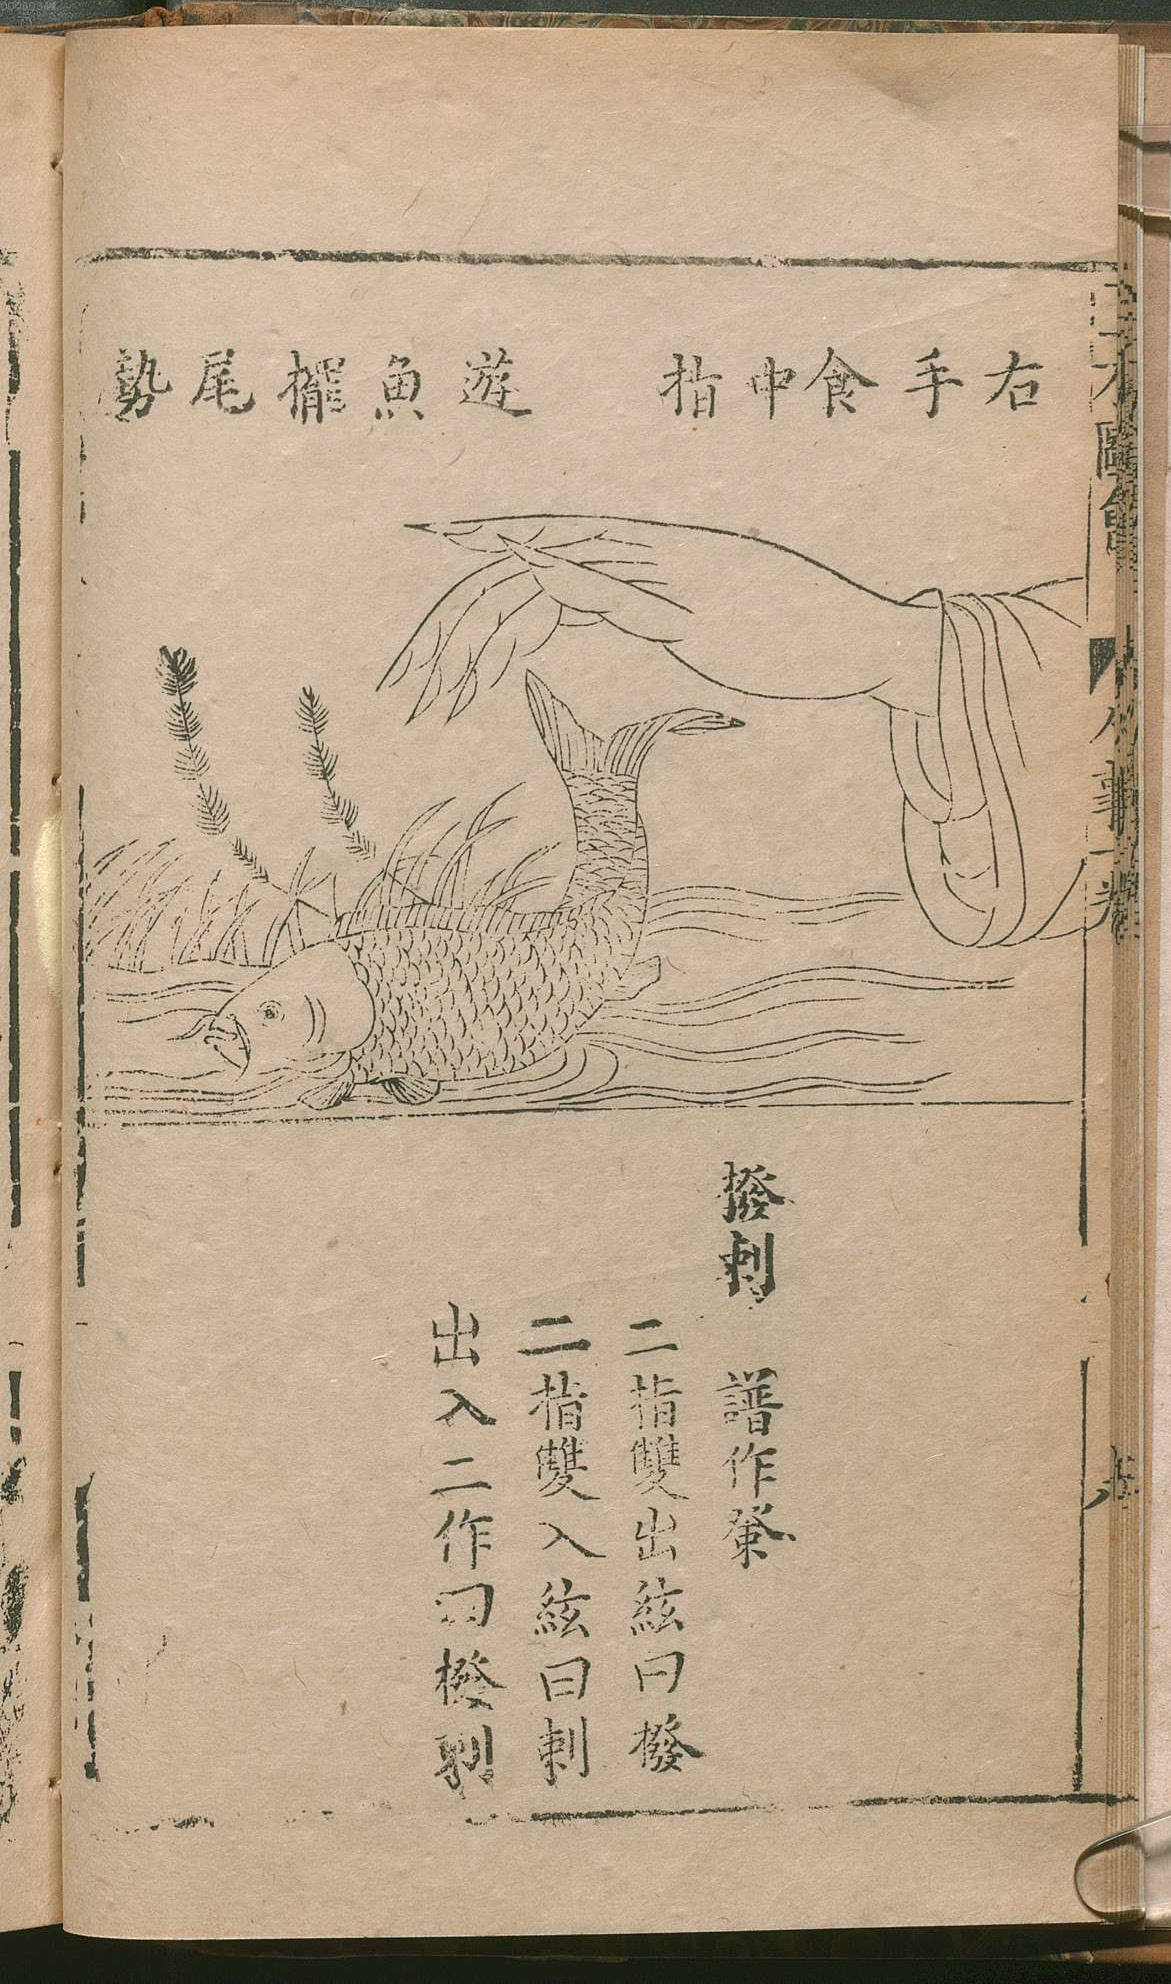 右手食中指　遊魚擺尾勢
撥刺　譜作𤼲
二指雙出絃曰撥
二指雙入絃曰刺
出入二作曰撥刺